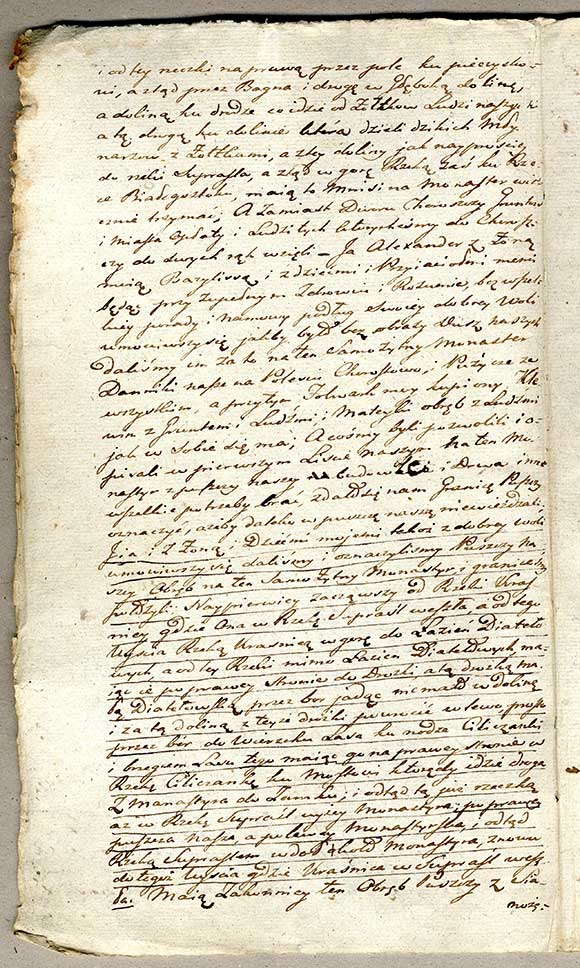 i od tey rzeczki na prawą przez pole ku pieczysko-
wi, a ztąd przez Bagna i drogę w Głęboką dolinę,
a doliną ku drodze co idzie od Zołtkow Ludzi naszych
a tą drogą ku dolinie która dzieli dzikich Mły
narzow z Zołtkami, a z tey doliny jak nayprościey
do rzeki Suprasla, a ztąd w gorę Rzeką zaś ku Rze
ce Białegostoku, maią to Mnisi na Monaster wie
cznie trzymać, A Zamiast Dworu Choroszczy Gruntow
i Miasta Opłaty i Ludzi tych ktorychśmy do Chorosz
czy do swych rąk wzięli – Ja Alexander z Żoną
moią Bazylissą i z dziećmi i Przyiaciołmi memi
będąc przy zupełnym Zdrowiu i Rozumie, bez wszeli
kiey porady i namowy podług Swoiey dobrey woli
umowiwszy się jakby było bez obrazy Dusz naszych
daliśmy im za to na ten Samożytny Monaster
Danniki nasze na Polesiu Chorostowo, i Puzycze ze
wszystkim, a przytym Folwark moy kupiony Kle
win z Gruntem i Ludźmi, Mateyki obręb z Ludźmi
jak w Sobie się ma, A cośmy byli pozwolili i o-
pisali w pierwszym Liscie Naszym na ten Mo
nastyr z puszczy naszey na budowanie i Drwa, i inne
wszelkie potrzeby brać, zdało się nam Granicę Puszczy
oznaczyć, ażeby daleko w puszczę naszą niewieżdzali.
Ja i z Żoną, Dziećmi mojemi także z dobrey woli
umowiwszy się daliśmy i oznaczylismy Puszczy na-
szey Obręb na ten Samożytny Monastyr, i granicę
położyli: Nayperwiey zacząwszy od Rzeki Kraś
nicy gdzie Ona w Rzekę Suprasl weszła, a od tego
Uyścia Rzeką Kraśnicą w gorę do Łazien Diatoło
wych, a od tey Rzeki mimo Łazien Diatełowych, ma-
iąc ie po prawey stronie do Drożki, a tą drożką na
tą Diatłowską przez bor jadąc niemało w dolinę
i za tą doliną z teyże drożki powrocić w lewo prosto
przez bor do Wierzchu Lasa ku rzece Ciliczanki
i brzegiem Lasu tego maiąc go na prawey stronie w
Rzekę Ciliczankę ku Mostowi ktorędy idzie droga
z Manastyra do Zamku; i odtąd tą już rzeczką
aż w Rzekę Supraśl wyżey Monastyra; po prawey
puszcza Nasza, a po lewey Monastyrska, i odtąd
Rzeką Supraslem w doł około Monastyra, znowu
do tegoż uyścia gdzie Kraśnica w Suprasl wesz
ła. Maią Zakonnicy ten Obręb Puszczy z Sia
nożę-